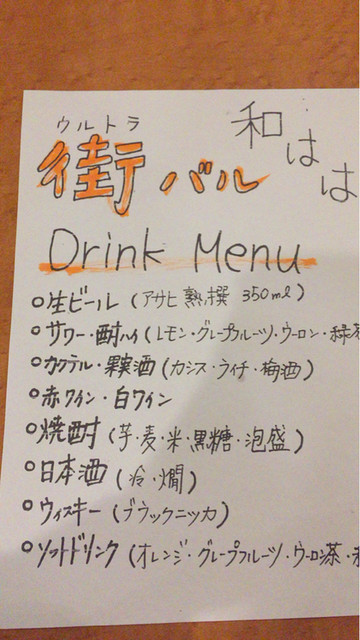 ウルトラ
街バル
和はは
Drink Menu
○生ビール(アサヒ熟撰 350ml)
○サワー・酎ハイ(レモン・グレープフルーツ・ウーロン・緑茶
○カクテル・果実酒(カシス・ライチ・梅酒)
○赤ワイン・白ワイン
○焼酎(芋・麦・米・黒糖・泡盛)
○日本酒(冷・燗)
○ウィスキー(ブラックニッカ)
○ソフトドリンク(オレンジ・グレープフルーツ・ウーロン茶・